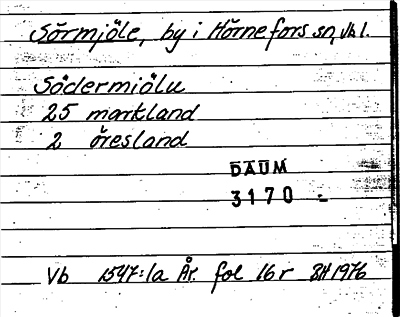 Sörmjöle, by i Hörnefors sn, Vb l.
Södermiölu
25 markland
2 öresland
DAUM
3170
Vb 1547:1a År. fol 16r BH 1976